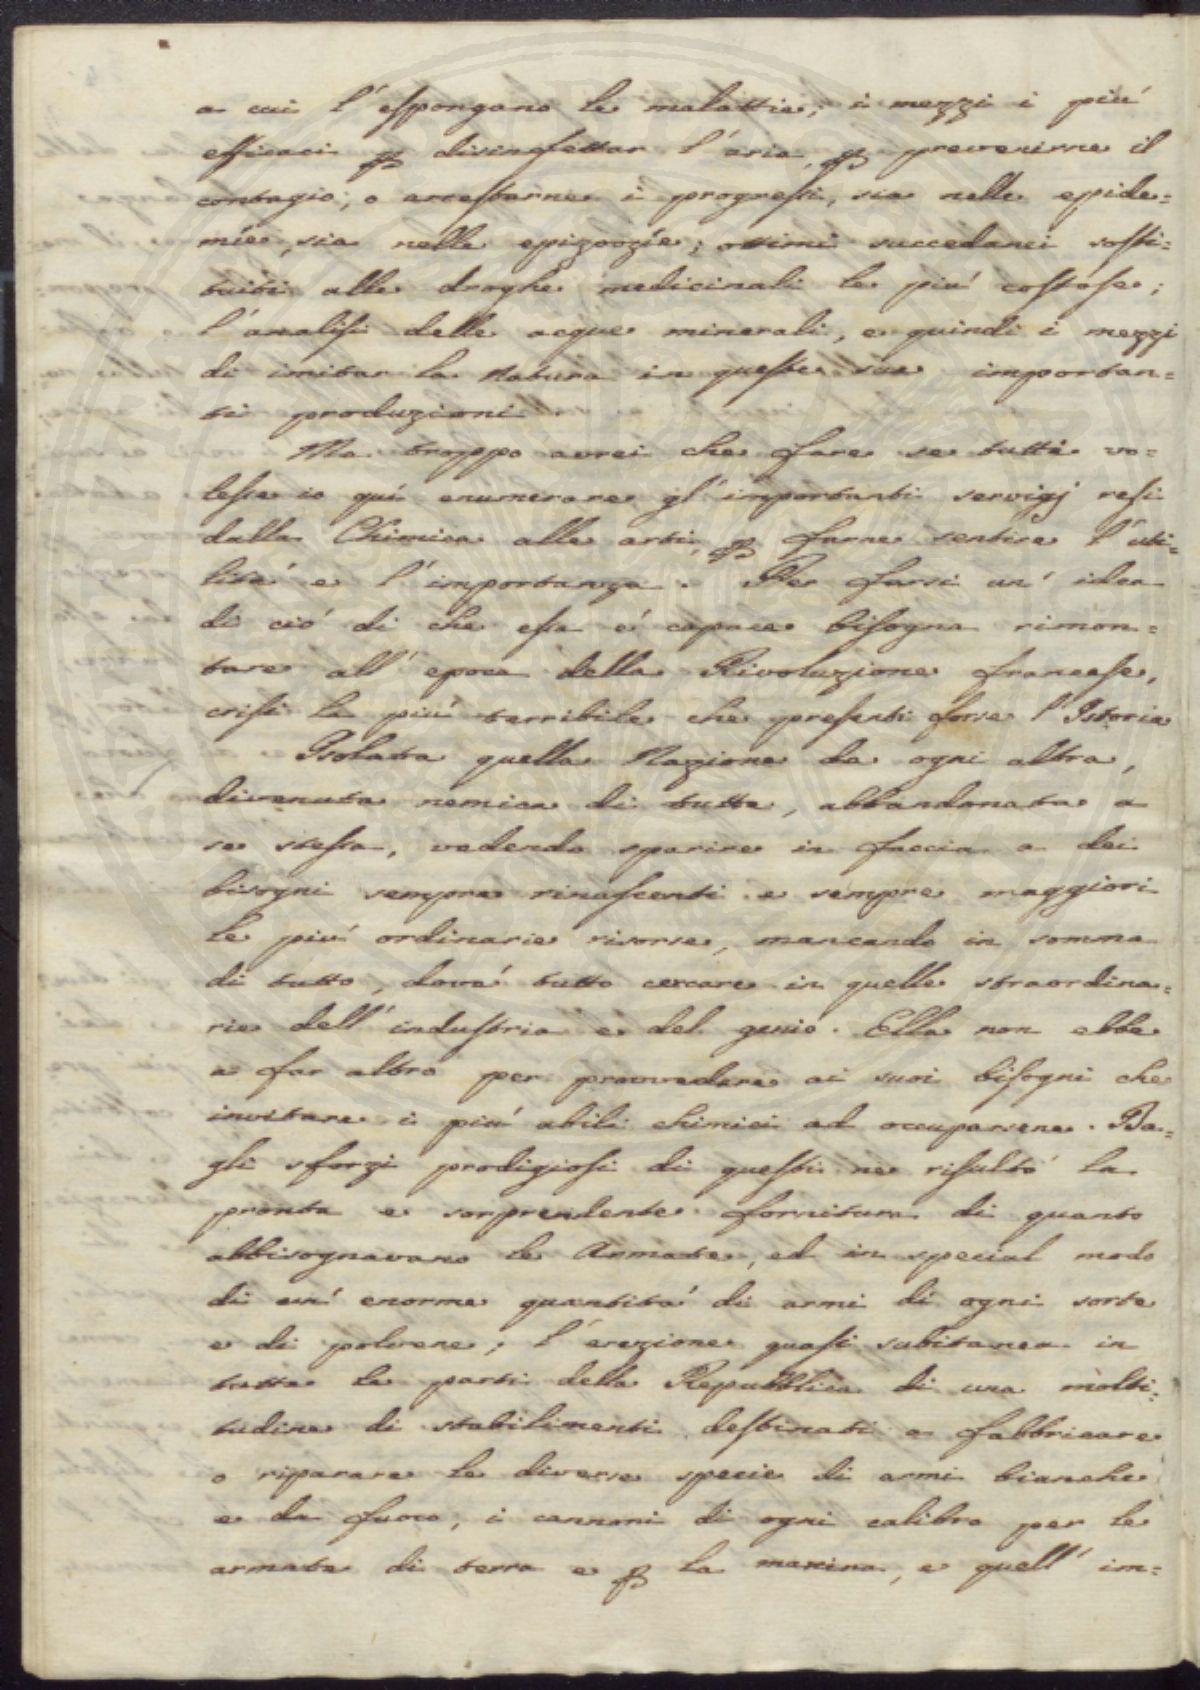 a cui l'espongano le malattie; i mezzi i piú
efficaci ꝑ disinfettar l'aria, ꝑ prevenirne il
contagio; o arrestarne i progressi, sia nelle epide=
míe, sia nelle epizoozíe; ottimi succedanei sosti=
tuiti alle droghe medicinali le piú costose;
l'analisi delle acque minerali, e quindi i mezzi
di imitar la Natura in queste sue importan=
ti produzioni.
Ma troppo avrei che fare se tutti vo=
lesse io quí enumerare gl'importanti servigj resi
dalla Chimica alle arti, ꝑ farne sentire l'uti=
litá e l'importanza. Per farsi un' idea
di ció di che essa é capace bisogna rimon=
tare all' epoca della Rivoluzione francese,
crisi la piú terribile che presenti forse l'Istoria
Isolata quella Nazione da ogni altra,
divenuta nemica di tutte, abbandonata a
se stessa, vedendo sparire in faccia a dei
bisogni sempre rinascenti e sempre maggiori
le piú ordinarie risorse, mancando in somma
di tutto, dové tutto cercare in quelle straordina=
rie dell' industria e del genio. Ella non ebbe
a far altro per provvedere ai suoi bisogni che
invitare i piú abili chimici ad occuparsene. Da=
gli sforzi prodigiosi di questi ne risultó la
pronta e sorprendente fornitura di quanto
abbisognavano le Armate, ed in special modo
di un' enorme quantitá di armi di ogni sorte
e di polvere; l'erezione quasi subitanea in
tutte le parti della Repubblica di una molti=
tudine di stabilimenti destinati a fabbricare
o riparare le diverse specie di armi bianche
e da fuoco, i cannoni di ogni calibro per le
armate di terra e ꝑ la marina, e quell' im=